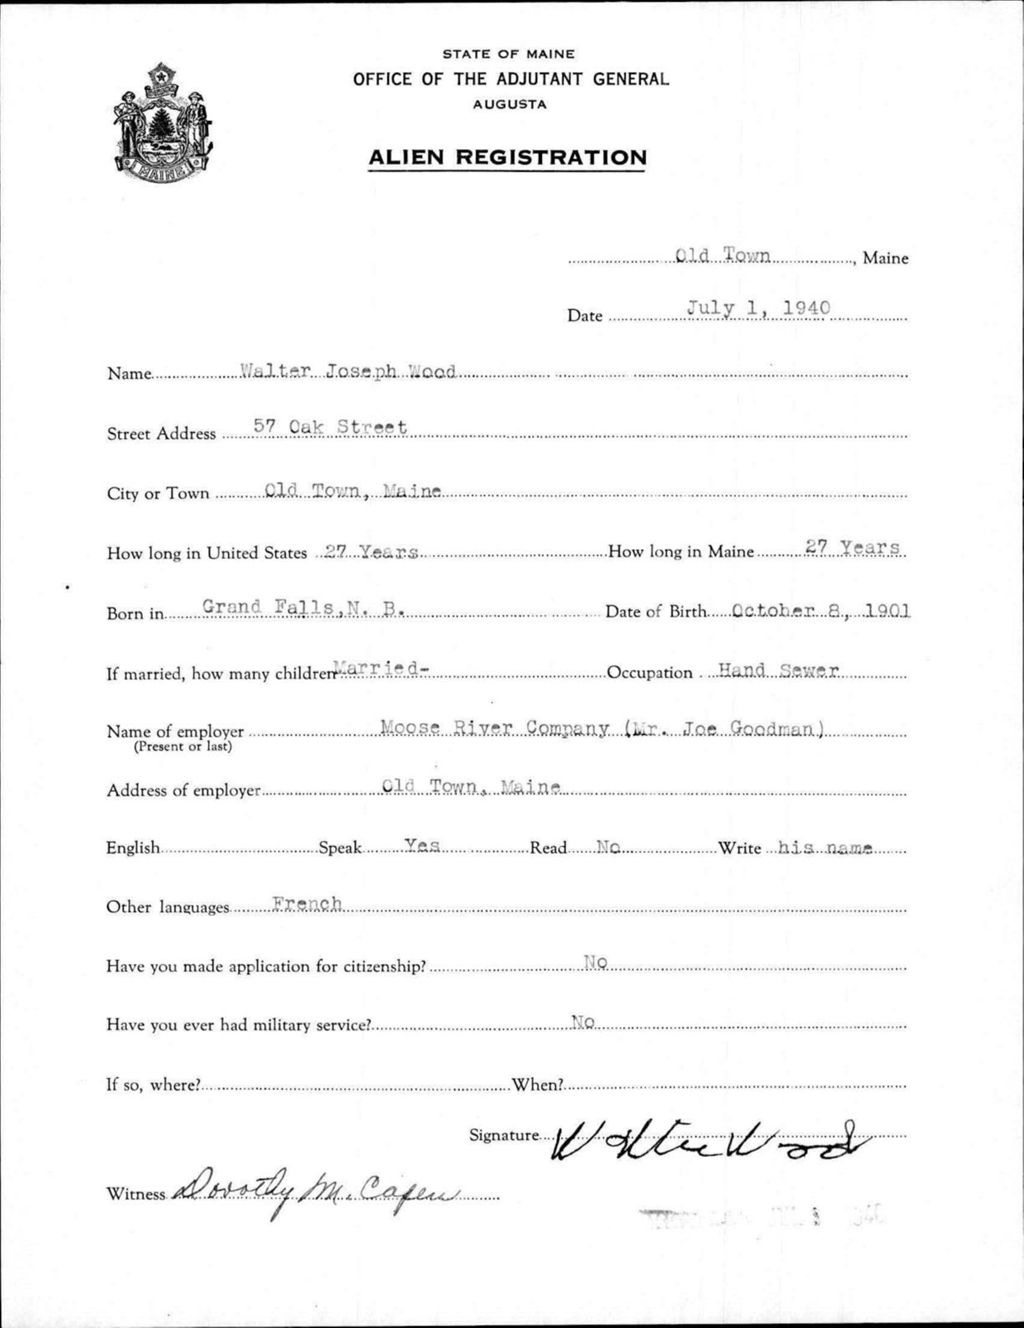 STATE OF MAINE
OFFICE OF THE ADJUTANT GENERAL
AUGUSTA
ALIEN REGISTRATION
MAINE
Old Town, Maine
Date July 1, 1940
Name Walter Joseph Wood
Street Address 57 Oak Street
City or Town Old Town, Maine
How long in United States 27 Years How long in Maine 27 Years
Born in Grand Falls, N. B. Date of Birth October 8, 1901
If married, how many children Married- Occupation Hand Sewer
Name of employer Moose River Company (Mr. Joe Goodman)
(Present or last)
Address of employer Old Town, Maine
English Speak Yes Read No Write his name
Other languages French
Have you made application for citizenship? No
Have you ever had military service? No
If so, where? When?
Signature Walter Wood
Witness Dorothy M. Capen